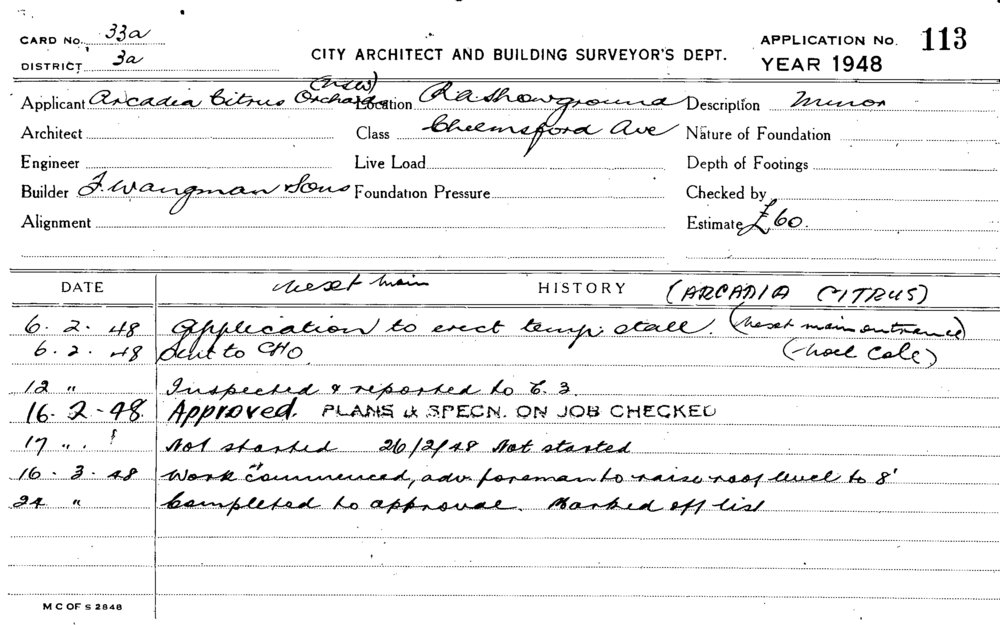 CARD No. 33a
DISTRICT 3a
CITY ARCHITECT AND BUILDING SURVEYOR'S DEPT.
APPLICATION No. 113
YEAR 1948
Applicant Arcadia Citrus Orchards (NSW) Location RAShowground Description Minor
Architect Class Chelmsford Ave Nature of Foundation
Engineer Live Load Depth of Footings
Builder F. Wangman Sons Foundation Pressure Checked by
Alignment Estimate £60.
DATE next main HISTORY (ARCADIA CITRUS)
6. 2. 48 Application to erect temp. stall. (next main entrance)
6. 2. 48 Sent to CHO. (Noel Cole)
12 " Inspected & reported to C. 3.
16. 2 - 48. Approved. PLANS & SPECN. ON JOB CHECKED
17 " . Not started 26/2/48 Not started
16 . 3 . 48 Work commenced, adv. foreman to raise roof level to 8'
24 " Completed to approval. Marked off list
M C OF S 2848